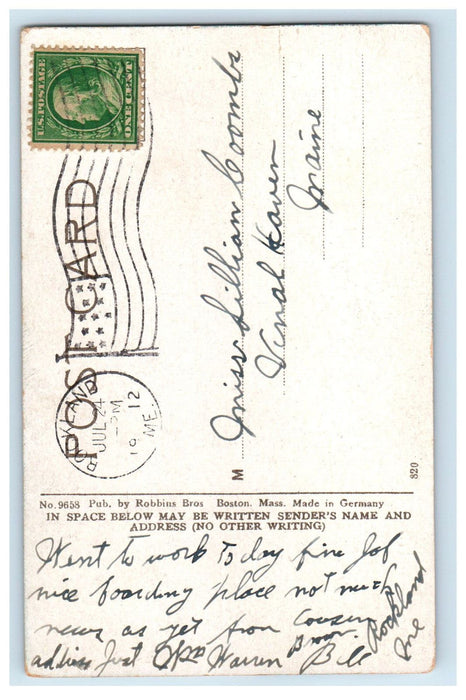 U.S. POSTAGE
ONE CENT
POST CARD
ROCKLAND
JUL 24
PM
1912
ME.
Miss Lillian Coombs
Vinal Haven
Maine
M
820
No. 9658 Pub. by Robbins Bros Boston. Mass. Made in Germany
IN SPACE BELOW MAY BE WRITTEN SENDER'S NAME AND
ADDRESS (NO OTHER WRITING)
Went to work To day fine Job
nice boarding place not much
news as yet from Cousin
address Just Warren Bill
Rockland
Me